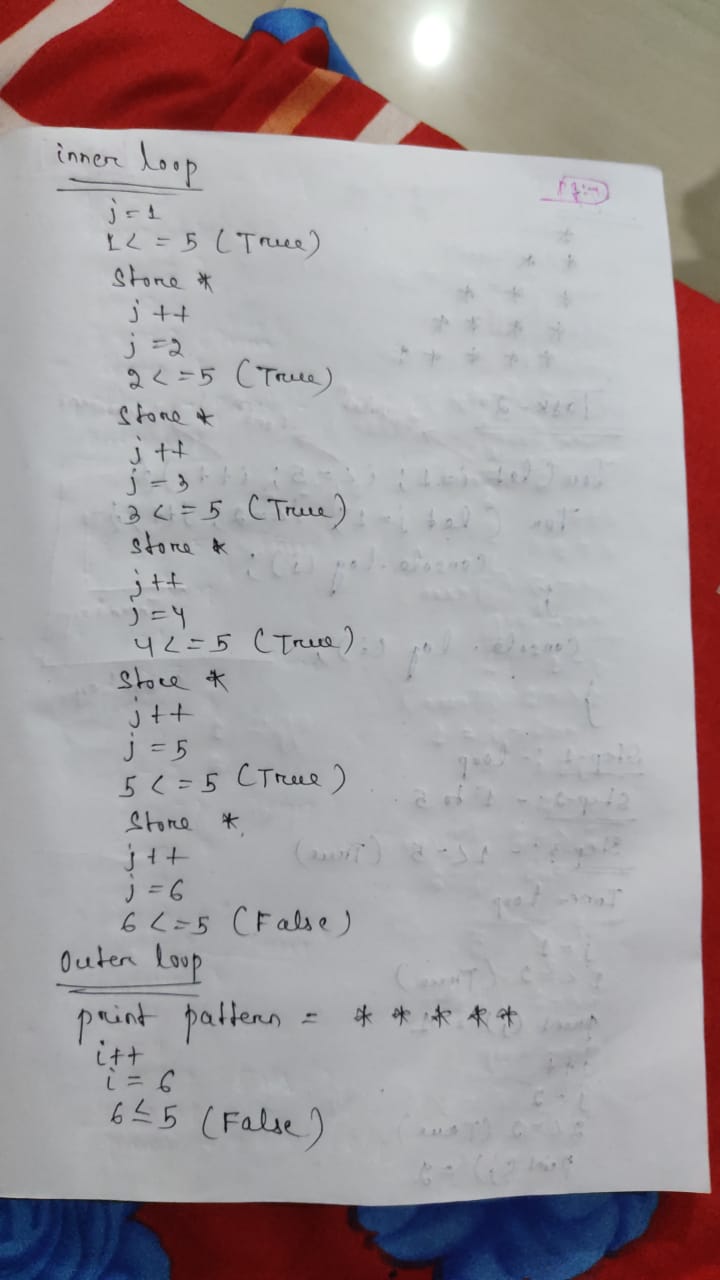 inner loop
j=1
1<=5 (True)
Store *
j++
j=2
2<=5 (True)
Store *
j++
j=3
3<=5 (True)
Store *
j++
j=4
4<=5 (True)
Store *
j++
j=5
5<=5 (True)
Store *
j++
j=6
6<=5 (False)
Outer loop
print pattern = * * * * *
i++
i=6
6≤5 (False)